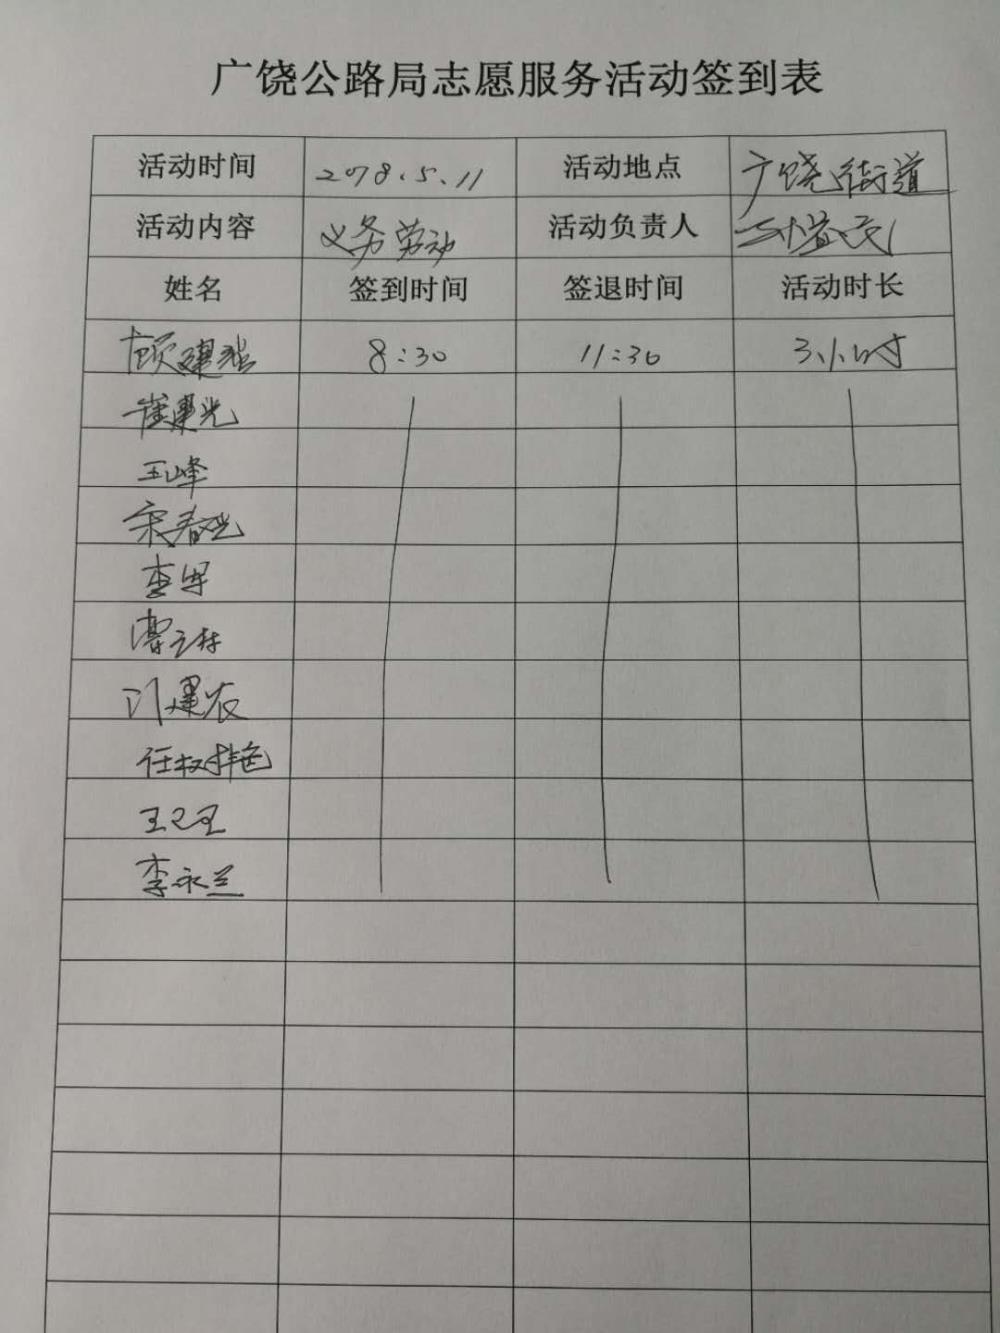 广饶公路局志愿服务活动签到表
活动时间 2018.5.11 活动地点 广饶街道
活动内容 义务劳动 活动负责人
姓名 签到时间 签退时间 活动时长
顾建强 8:30 11:30 3小时
崔建光
王峰
宋春光
李军
门建农
王卫国
李永兰